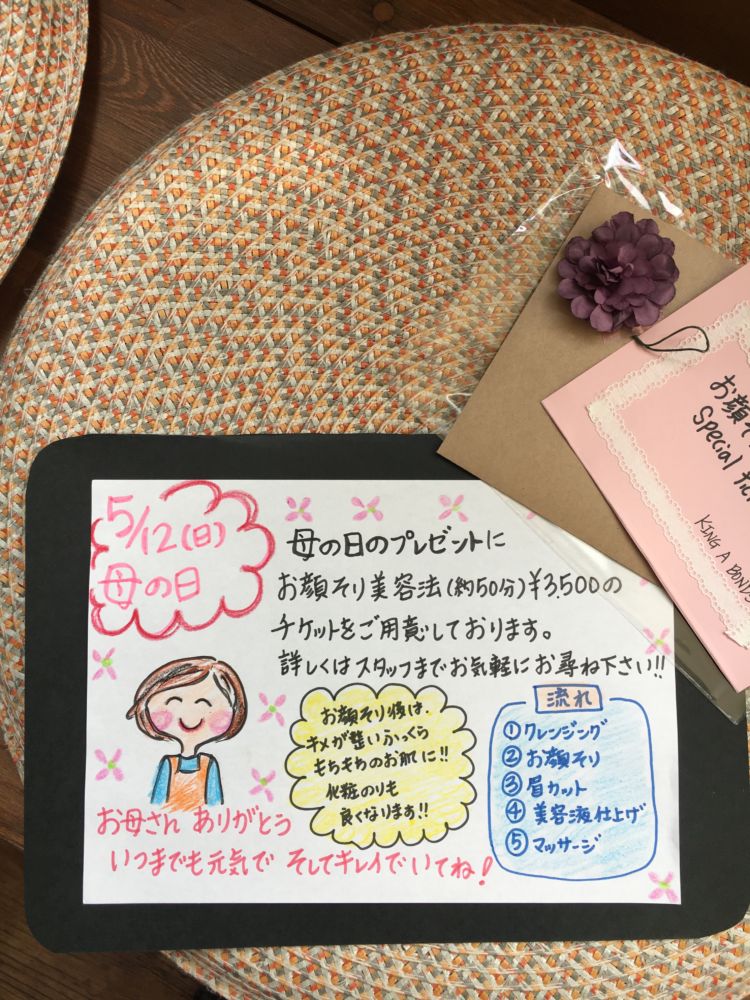 お顔そ
Special tic
KING A BONDS
5/12(日)
母の日
母の日のプレゼントに
お顔そり美容法(約50分)¥3,500の
チケットをご用意しております。
詳しくはスタッフまでお気軽にお尋ね下さい!!
お顔そり後は、
キメが整いふっくら
もちもちのお肌に!!
化粧のりも
良くなります!!
流れ
①クレンジング
②お顔そり
③眉カット
④美容液仕上げ
⑤マッサージ
お母さん ありがとう
いつまでも元気で そしてキレイでいてね!